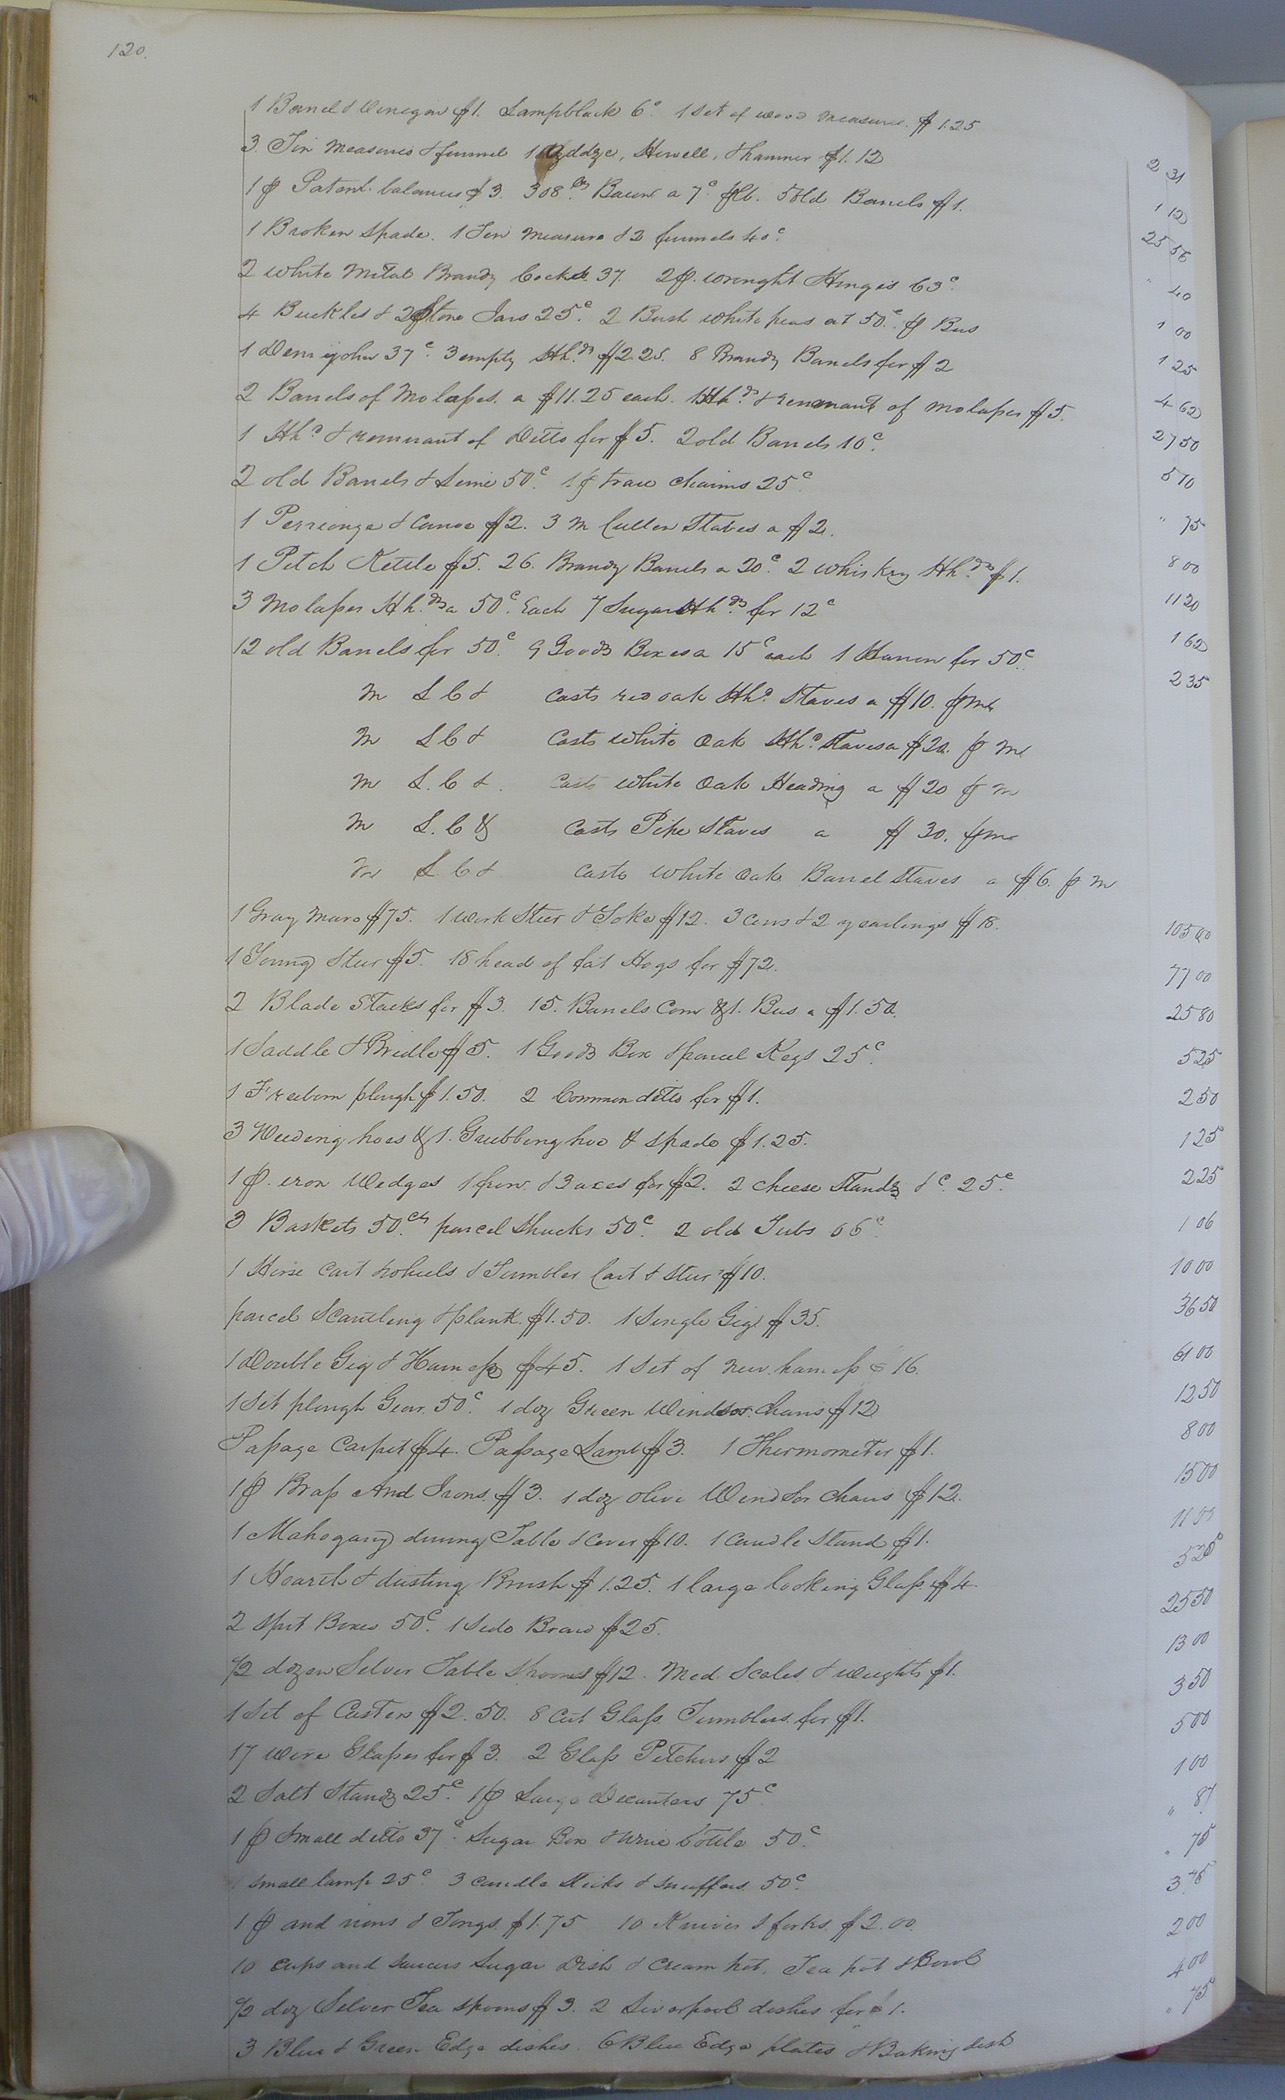 120.
1 Barrel & Vinegar $1. Lampblack 6c. 1 Set of wood measures. $1.25 2 31
3 Tin Measures & funnel 1 Addze, Howell, & hammer $1.12 1 12
1 p Patent balances $3. 308 lbs Bacon a 7c. plb. 5 old Barrels $1. 25 56
1 Broken Spade. 1 Tin Measure & 2 funnels 40c. " 40
2 white Metal Brandy Cocks 37. 2 p. wrought Hinges 63c. 1 00
4 Buckles & 2 Stone Jars 25c. 2 Bush white peas at 50c. p Bus 1 25
1 Demijohn 37c. 3 empty Hhds $2.25. 8 Brandy Barrels for $2 4 62
2 Barrels of Molasses. a $11.25 each. 1 Hhd & remnant of molasses $5. 27 50
1 Hhd & remnant of Ditto for $5. 2 old Barrels 10c. 5 10
2 old Barrels & Lime 50c. 1 p trace chains 25c " 75
1 Perrionger & Canoe $2. 3 M Cullen Staves a $2. 8 00
1 Pitch Kettle $5. 26. Brandy Barrels a 20c. 2 Whiskey Hhds $1. 11 20
3 Molasses Hhds a 50c. Each 7 Sugar Hhds for 12c 1 62
12 old Barrels for 50c. 9 Goods Boxes a 15c each 1 Harrow for 50c. 2 35
M L C & casts red oak Hhd. Staves a $10. p M
M L C & casts White Oak Hhd. Staves a $20. p M
M L. C &. casts white Oak Heading a $20 p M
M L. C & casts Pipe Staves a $30. p M
M L C & casts White Oak Barrel Staves a $6. p M
1 Gray Mare $75. 1 work Steer & Yoke $12. 3 cows & 2 yearlings $18. 105 00
1 Young Steer $5. 18 head of fat Hogs for $72. 77 00
2 Blade Stacks for $3. 15. Barrels Corn & 1. Bus a $1.50. 25 80
1 Saddle & Bridle $5. 1 Goods Box & parcel Kegs 25c. 5 25
1 Freeborn plough $1.50. 2 Common ditto for $1. 2 50
3 Weeding hoes & 1. Grubbing hoe & spade $1.25. 1 25
1 p. iron Wedges 1 frow & 3 axes for $2. 2 cheese Stands &c. 25c. 2 25
3 Baskets 50cts. parcel Shucks 50c. 2 old Tubs 06c. 1 06
1 Horse Cart wheels & Tumbler Cart & Steer $10. 10 00
parcel Scantling & plank. $1.50. 1 Single Gig $35. 36 50
1 Double Gig & Harness $45. 1 Set of new harness $16. 61 00
1 Set plough Gear. 50c. 1 doz Green Windsor Chairs $12 12 50
Passage Carpet $4. Passage Lamp $3. 1 Thermometer $1. 8 00
1 p Brass And Irons. $3. 1 doz olive Windsor Chairs $12. 15 00
1 Mahogany dining Table & cover $10. 1 Candle Stand $1. 11 00
1 Hearth & dusting Brush $1.25. 1 large looking Glass $4. 5 25
2 Spit Boxes 50c. 1 Side Board $25. 25 50
1/2 dozen Silver Table Spoons $12. Med. Scales & weights $1. 13 00
1 Set of Casters $2.50. 8 Cut Glass Tumblers for $1. 3 50
17 wine Glasses for $3. 2 Glass Pitchers $2 5 00
2 Salt Stands 25c. 1 p Large Decanters 75c. 1 00
1 p Small ditto 37c. Sugar Box & wine bottle 50c. " 87
1 small lamp 25c. 3 candle Sticks & snuffers 50c. " 75
1 p and irons & Tongs $1.75 10 Knives & forks. $2.00. 3 75
10 cups and saucers Sugar dish & Cream pot, Tea pot & Bowl 2 00
1/2 doz Silver Tea spoons $3. 2 Liverpool dishes for $1. 4 00
3 Blue & Green Edge dishes. 6 Blue Edge plates & Baking dish " 75